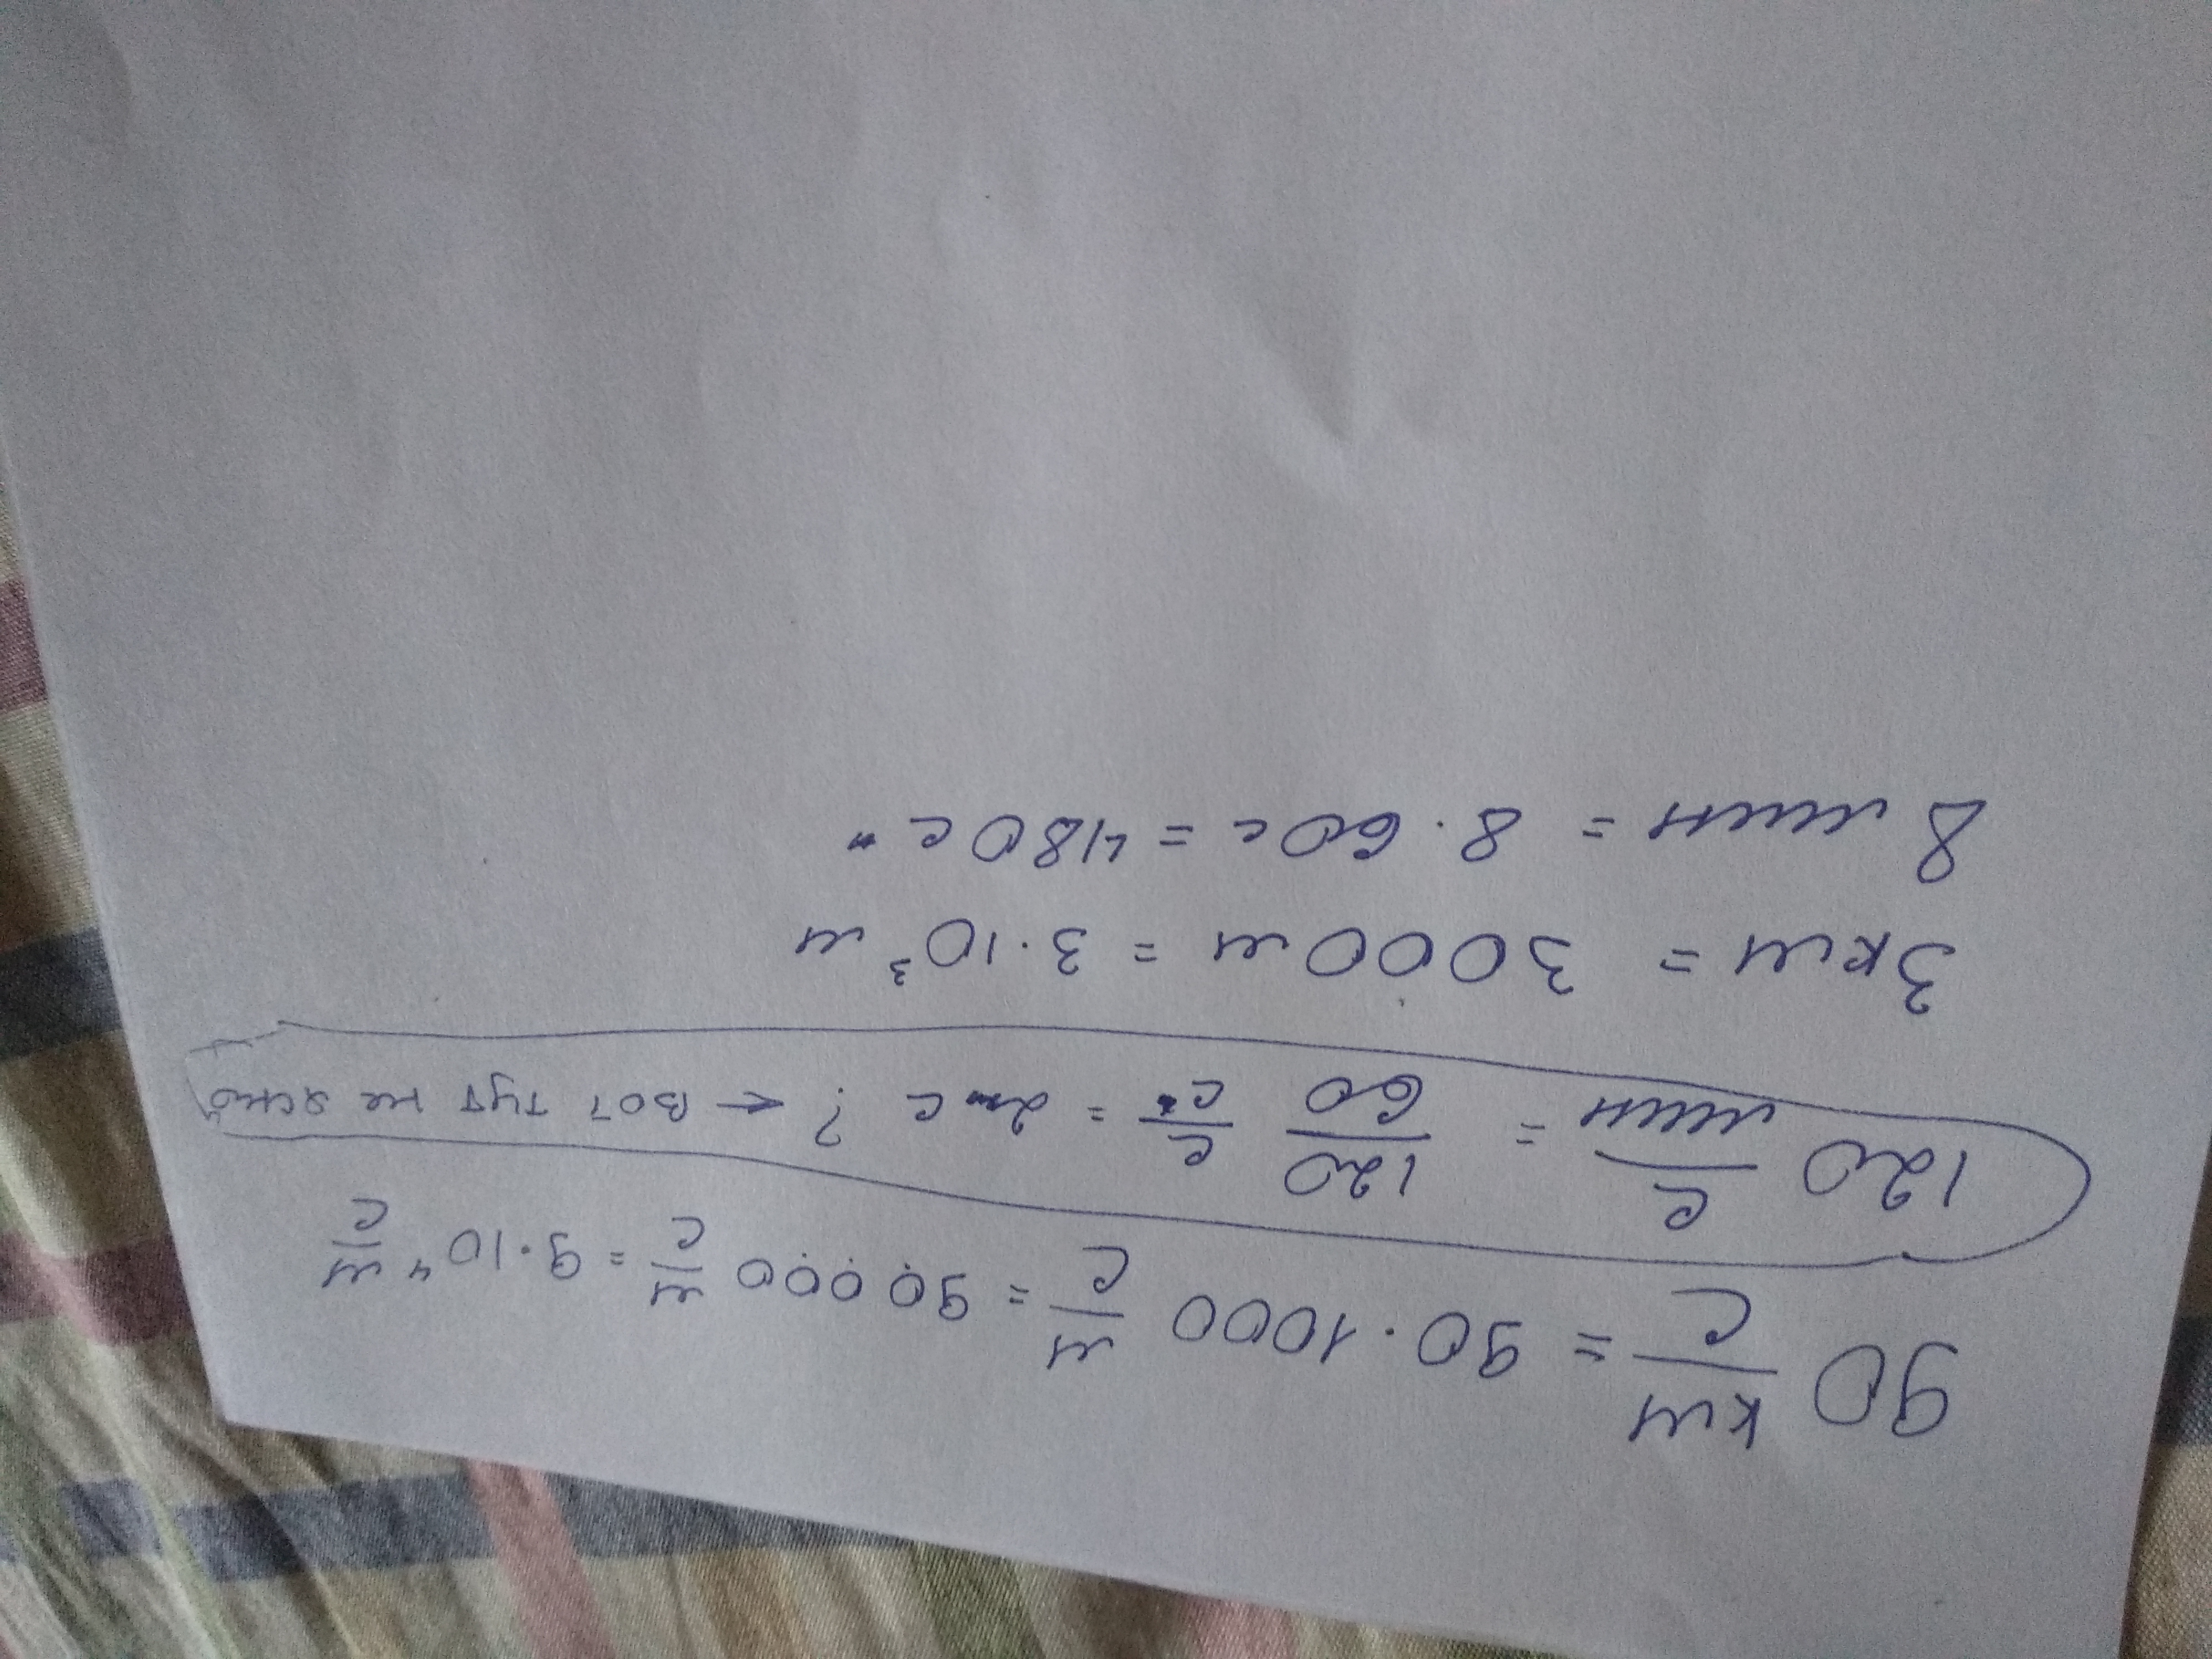 90 км/с = 90·1000 м/с = 90000 м/с = 9·10⁴ м/с
120 с/мин = 120/60 с/с = 2 с ? ← вот тут не ясно
3км = 3000м = 3·10³ м
8 мин = 8·60с = 480с